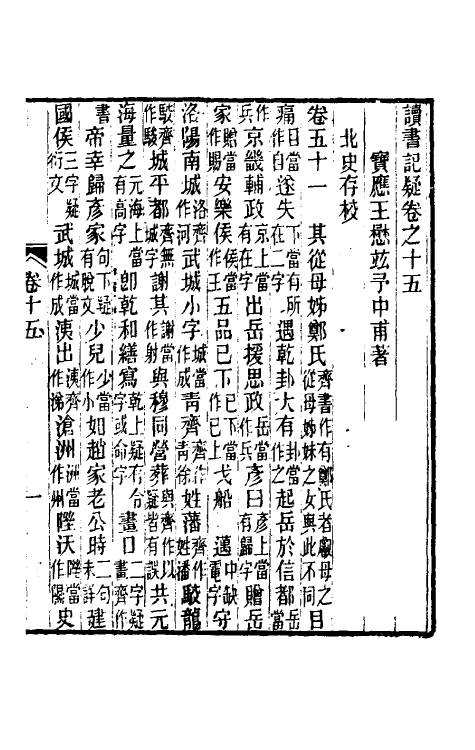 讀書記疑卷之十五
寶應王懋竑予中甫著
北史存校
卷五十一 其從母姊鄭氏齊書作有鄭氏者嶽母之從母姊妹之女與此不同目
痛目當作自遂失下當有所在二字遇乾卦大有卦當作之起岳於信都岳當
作兵京畿輔政京上當有在字出岳援思政岳當作兵彥曰彥上當有歸字贈岳
家贈當作賜安樂侯侯當作王五品已下已下當作已上戈船 邁中缺電字守
洛陽南城洛齊作河武城小字城當作成青齊靑齊作靑徐姓藩齊作姓潘駮龍
駮齊作駿城平都齊無城字謝其謝當作射與穆同營葬與齊作以葬疑皆有誤共元
海量之元海上當有高字卽乾和繕寫乾上疑有令字或命字畫口二字疑畫齊作
書帝幸歸彥家句下疑有脫文少兒少當作小如趙家老公時二句未詳建
國侯三字疑衍文武城城當作成洟出洟齊作涕滄洲洲當作州陞沃陞當作陽史
卷十五
一